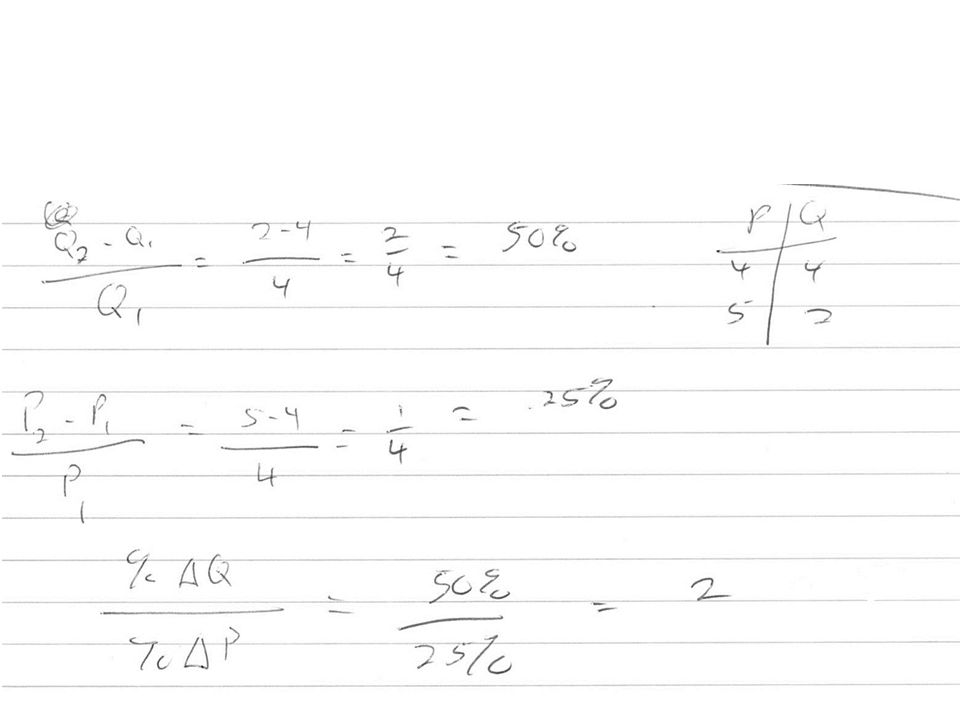 Q₂ - Q₁ / Q₁ = 2-4 / 4 = 2/4 = 50%
P | Q
4 | 4
5 | 2
P₂ - P₁ / P₁ = 5-4 / 4 = 1/4 = .25%
% ΔQ / % ΔP = 50% / 25% = 2